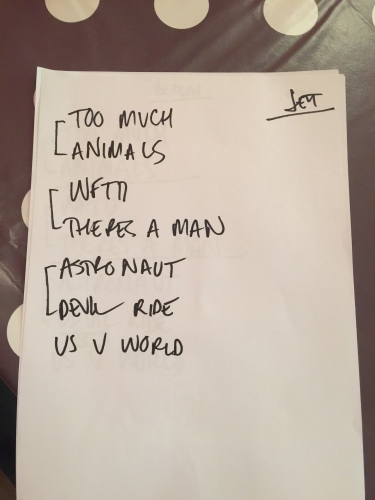 SET
TOO MUCH
ANIMALS
WFTM
THERES A MAN
ASTRONAUT
DEVIL RIDE
US V WORLD